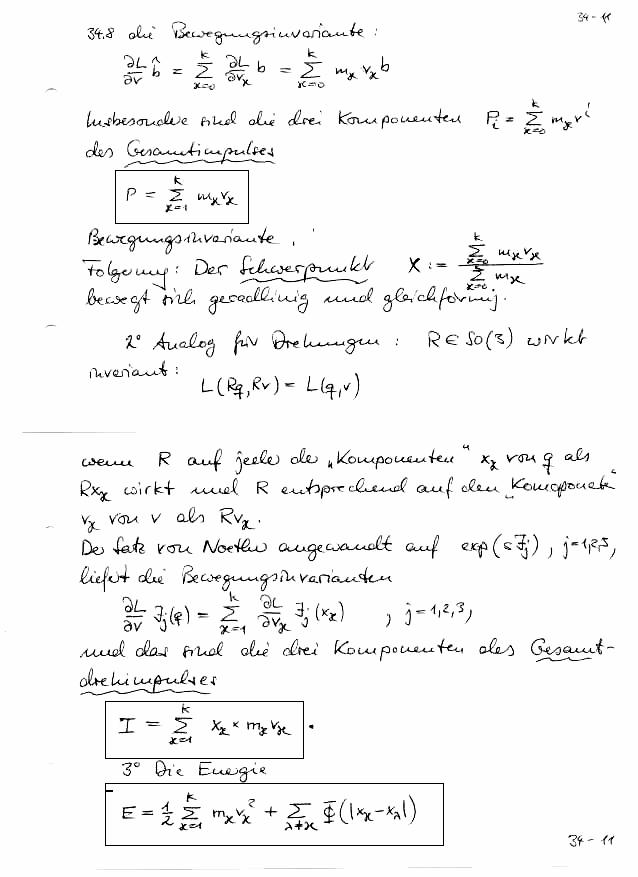 34-11
34.8 die Bewegungsinvariante:
∂L/∂v b̂ = Σ_{ϰ=0}^{k} ∂L/∂v_ϰ b = Σ_{ϰ=0}^{k} m_ϰ v_ϰ b
Insbesondere sind die drei Komponenten P_i = Σ_{ϰ=0}^{k} m_ϰ v^i
des Gesamtimpulses
P = Σ_{ϰ=1}^{k} m_ϰ v_ϰ
Bewegungsinvariante.
Folgerung: Der Schwerpunkt X := Σ_{ϰ=0}^{k} m_ϰ v_ϰ / Σ_{ϰ=0} m_ϰ
bewegt sich geradlinig und gleichförmig.
2° Analog für Drehungen: R ∈ SO(3) wirkt
invariant:
L(Rq, Rv) = L(q, v)
wenn R auf jede de „Komponenten" x_ϰ von q als
Rx_ϰ wirkt und R entsprechend auf den „Komponente"
v_ϰ von v als Rv_ϰ.
De Satz von Noether angewandt auf exp(s J_j), j=1,2,3,
liefert die Bewegungsinvarianten
∂L/∂v J_j(q) = Σ_{ϰ=1}^{k} ∂L/∂v_ϰ J_j(x_ϰ) , j=1,2,3,
und das sind die drei Komponenten des Gesamt-
drehimpulses
I = Σ_{ϰ=1}^{k} x_ϰ × m_ϰ v_ϰ .
3° Die Energie
E = 1/2 Σ_{ϰ=1}^{k} m_ϰ v_ϰ² + Σ_{λ≠ϰ} Φ(|x_ϰ − x_λ|)
34-11